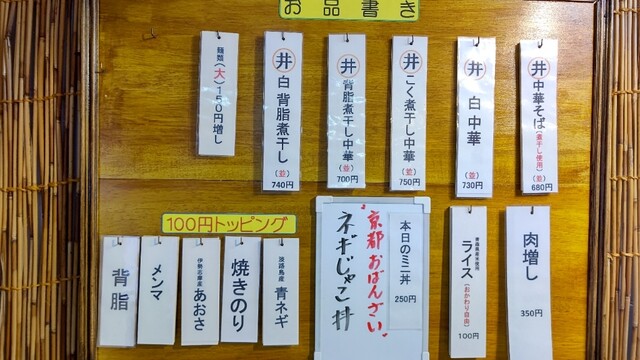 お品書き
井 中華そば(煮干し使用)(並)680円
井 白 中華(並)730円
井 こく煮干し中華(並)750円
井 背脂煮干し中華(並)700円
井 白 背脂煮干し(並)740円
麺類(大)150円増し
肉増し 350円
ライス(おかわり自由)100円
本日のミニ丼 250円
"京都おばんざい"
ネギじゃこ丼
100円トッピング
淡路島産 青ネギ
焼きのり
伊勢志摩産 あおさ
メンマ
背脂